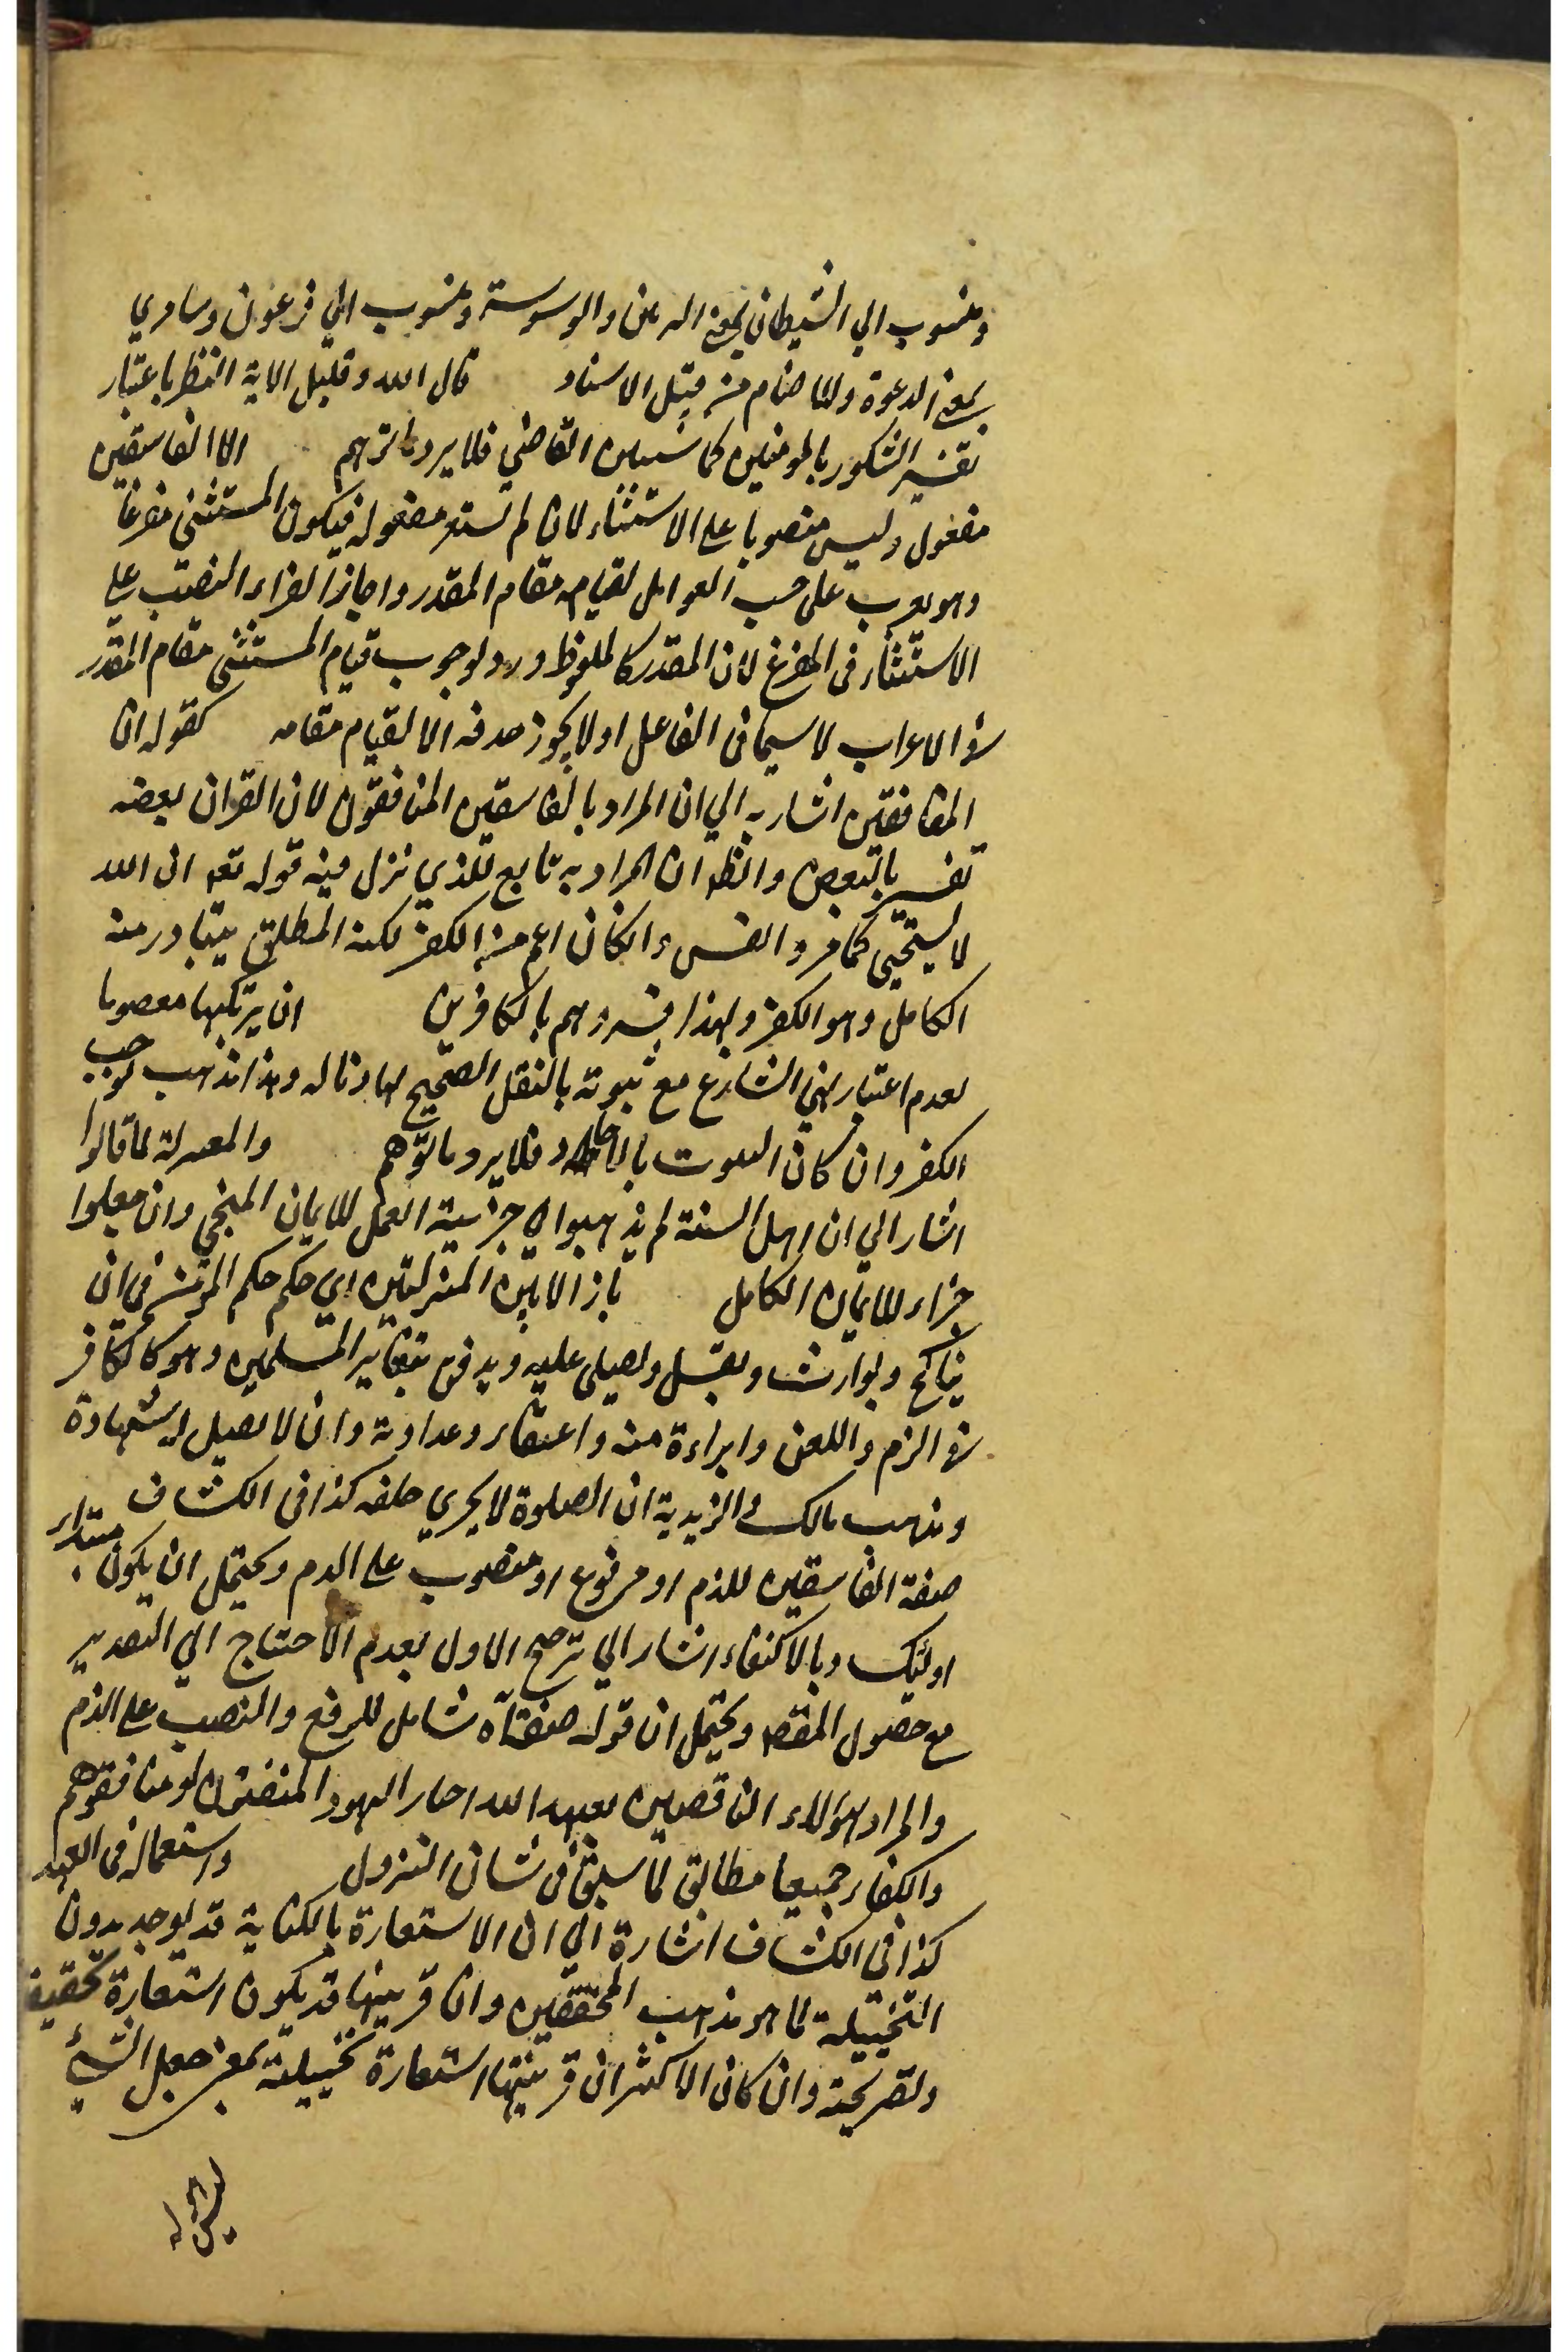 ومنسوب الي الشيطان بمعنى الدعا والوسوسة ومنسوب الي فرعون وسامري
بمعنى الدعوة والاصنام من قبيل الاسناد قال الله وقليل الاية النظر باعتبار
تفسير الشكور بالمومنين كما سيبين القاضي فلا يرد ما توهم الا الفاسقين
مفعول وليس منصوبا على الاستثناء لان لم تستغن مفعوله فيكون المستثنى مفرغا
وهو يعرب على حسب العوامل لقيامه مقام المقدر واجاز الفراء النصب على
الاستثناء في المفرغ لان المقدر كالملفوظ ورد لوجوب قيام المستثنى مقام المقدر
في الاعراب لا سيما في الفاعل اذ لا يجوز حذفه الا لقيام مقامه كقوله ان
المنافقين اشار به الي ان المراد بالفاسقين المنافقون لان القران بعضه
تفسير بالبعض والظ ان المراد به تابع للذي نزل فيه قوله تعه ان الله
لا يستحيي كما مر والفسق وان كان اعم من الكفر لكنه المطلق يتبادر منه
الكامل وهو الكفر ولهذا فسروهم بالكافرين ان يرتكبها معصوبا
لعدم اعتبار نهي الشارع مع ثبوته بالنقل الصحيح لها وناله وهذا مذهب لوجب
الكفر وان كان الثبوت بالاحاد فلا يرد ما توهم والمعتزلة لما قالوا
اشار الي ان اهل السنة لم يذهبوا الي جزئية العمل للايمان المنجي وان جعلوا
جزاء للايمان الكامل نازلا بين المنزلتين اي حكم حكم المؤمن في ان
يناكح ويوارث ويغسل ويصلى عليه ويدفن بمقابر المسلمين وهو كالكافر
في الذم واللعن وابراءة منه واعتقاد وعداوته وان لا يقبل له شهادة
ومذهب مالك والزيدية ان الصلوة لا يجزي خلفه كذا في الكشاف
صفة الفاسقين للذم او مرفوع او منصوب على الذم ويحتمل ان يكون مبتداء
اولئك وبالاكتفاء اشار الي ترجيح الاول بعدم الاحتياج الي التقدير
مع حصول المقصد ويحتمل ان قوله صفة آه شامل للرفع والنصب على الذم
والمراد بهؤلاء الناقضين لعهد الله احبار اليهود المنقضون او منافقوهم
والكفار جميعا مطابق لما سبق في شان النزول واستعماله في العهد
كذا في الكشاف اشارة الي ان الاستعارة بالكناية قد يوجد بدون
التخييلية كما هو مذهب المحققين وان قرينتها قد يكون استعارة تحقيقية
وتصريحية وان كان الاكثر ان قرينتها استعارة تخييلية بمعنى جعل الشيء